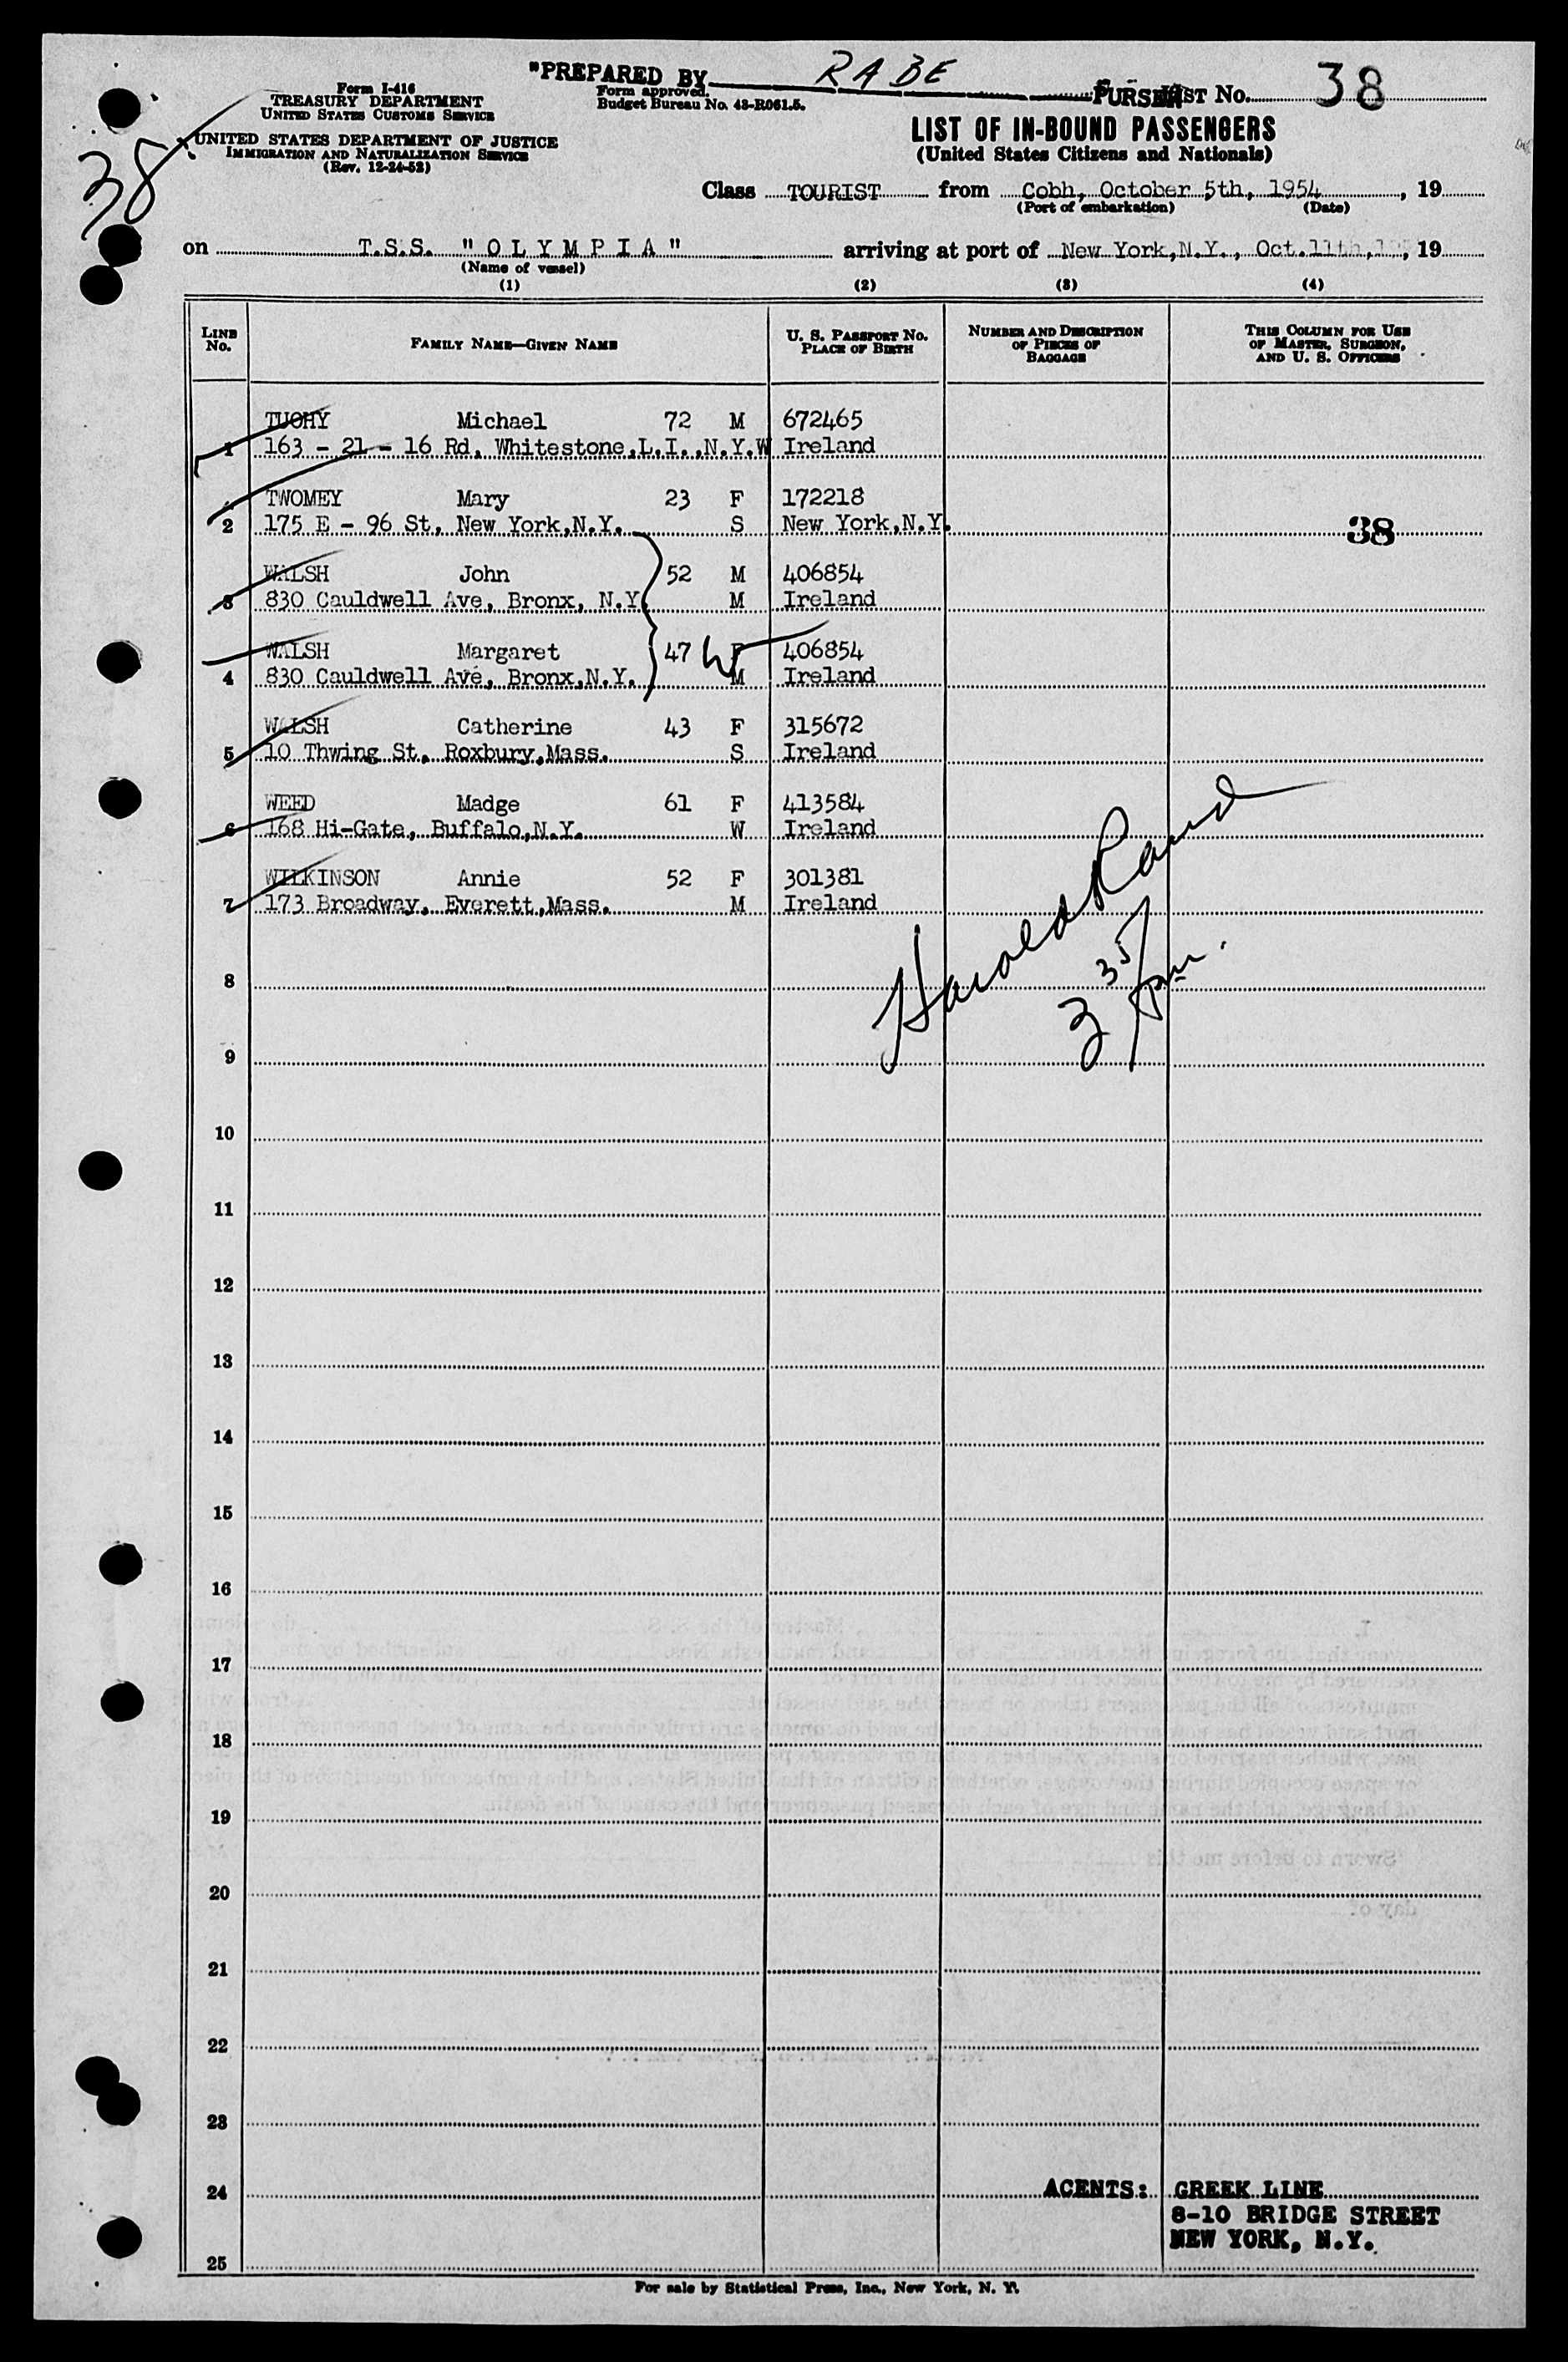 "PREPARED BY RABE PURSER
Form I-416
TREASURY DEPARTMENT
UNITED STATES CUSTOMS SERVICE
UNITED STATES DEPARTMENT OF JUSTICE
IMMIGRATION AND NATURALIZATION SERVICE
(Rev. 12-24-52)
38
Form approved.
Budget Bureau No. 43-R061.5.
LIST No. 38
LIST OF IN-BOUND PASSENGERS
(United States Citizens and Nationals)
Class TOURIST from Cobh, October 5th, 1954, 19
(Port of embarkation) (Date)
on T.S.S. "OLYMPIA" arriving at port of New York,N.Y., Oct.11th, 19
(Name of vessel)
(1) (2) (3) (4)
LINE No. FAMILY NAME—GIVEN NAME U. S. PASSPORT No. PLACE OF BIRTH NUMBER AND DESCRIPTION OF PIECES OF BAGGAGE THIS COLUMN FOR USE OF MASTER, SURGEON, AND U. S. OFFICERS
TUOHY Michael 72 M 672465
1 163 - 21 - 16 Rd, Whitestone,L.I.,N.Y.W Ireland
TWOMEY Mary 23 F 172218
2 175 E - 96 St, New York,N.Y. S New York,N.Y. 38
WALSH John 52 M 406854
3 830 Cauldwell Ave, Bronx, N.Y. M Ireland
WALSH Margaret 47 F 406854
4 830 Cauldwell Ave, Bronx,N.Y. M Ireland
WALSH Catherine 43 F 315672
5 10 Thwing St, Roxbury,Mass. S Ireland
WEED Madge 61 F 413584
6 168 Hi-Gate, Buffalo,N.Y. W Ireland
WILKINSON Annie 52 F 301381
7 173 Broadway, Everett,Mass. M Ireland
Harold
3 35 pm.
8
9
10
11
12
13
14
15
16
17
18
19
20
21
22
23
24 AGENTS: GREEK LINE
8-10 BRIDGE STREET
NEW YORK, N.Y.
25
For sale by Statistical Press, Inc., New York, N. Y.